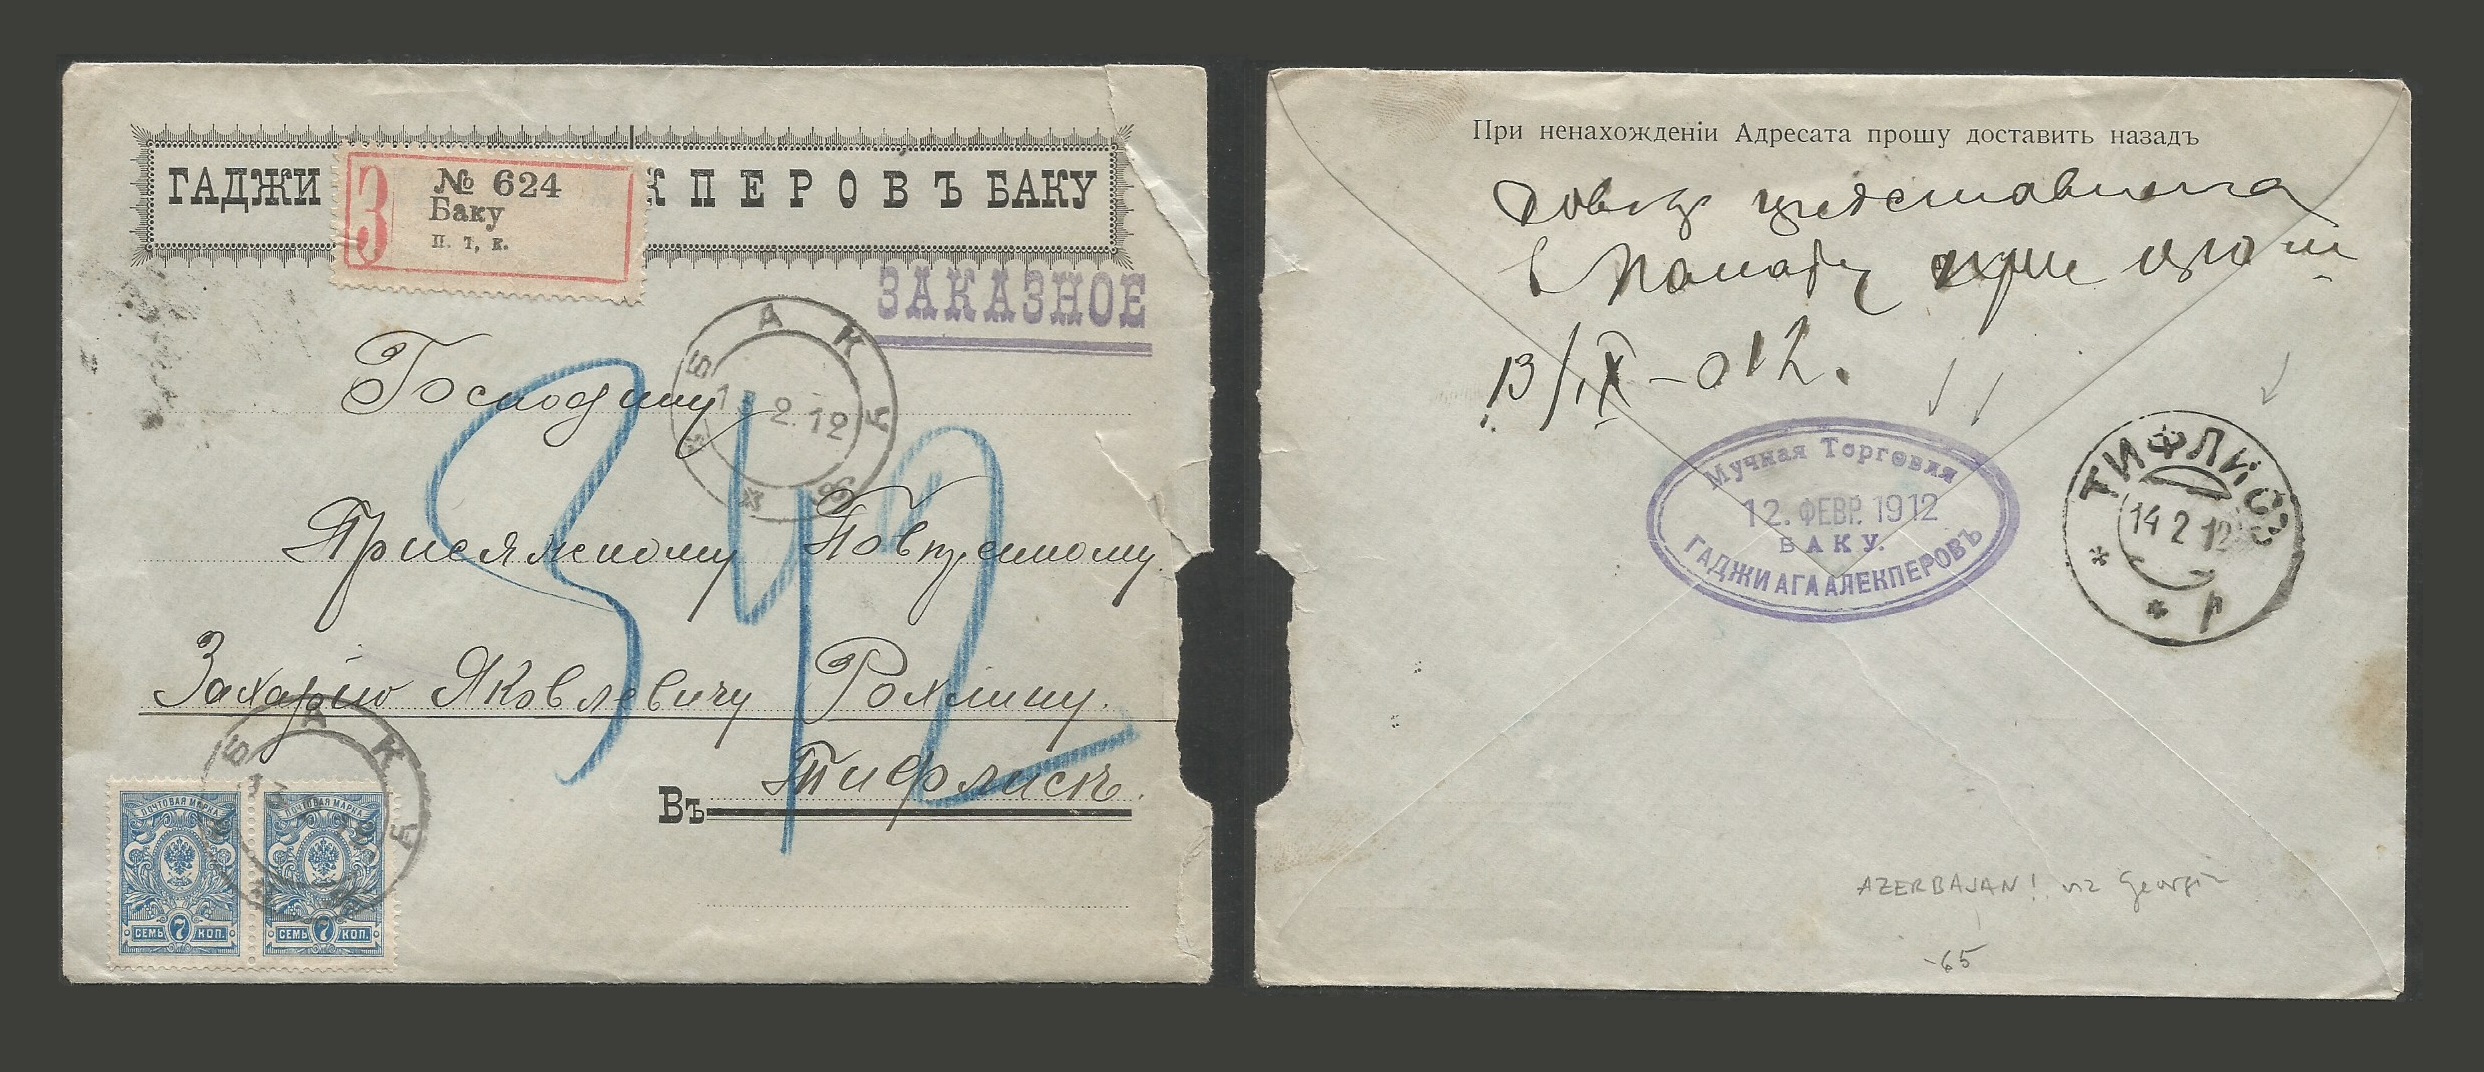 ГАДЖИ КПЕРОВЪ БАКУ
З
№ 624
Баку
п. т. к.
ЗАКАЗНОЕ
БАКУ
13 2.12
Господину
342
Присяжному Повѣренному
Захарію Яковлевичу Рохлину.
Въ Тифлисѣ.
БАКУ
ПОЧТОВАЯ МАРКА ПОЧТОВАЯ МАРКА
СЕМЬ 7 КОП. СЕМЬ 7 КОП.
При ненахожденіи Адресата прошу доставить назадъ
при
13/IX-012.
Мучная Торговля
12. ФЕВР. 1912
БАКУ.
ГАДЖИ АГА АЛЕКПЕРОВЪ
ТИФЛИСЪ
14 2 12
AZERBAJAN! via Georgia
-65